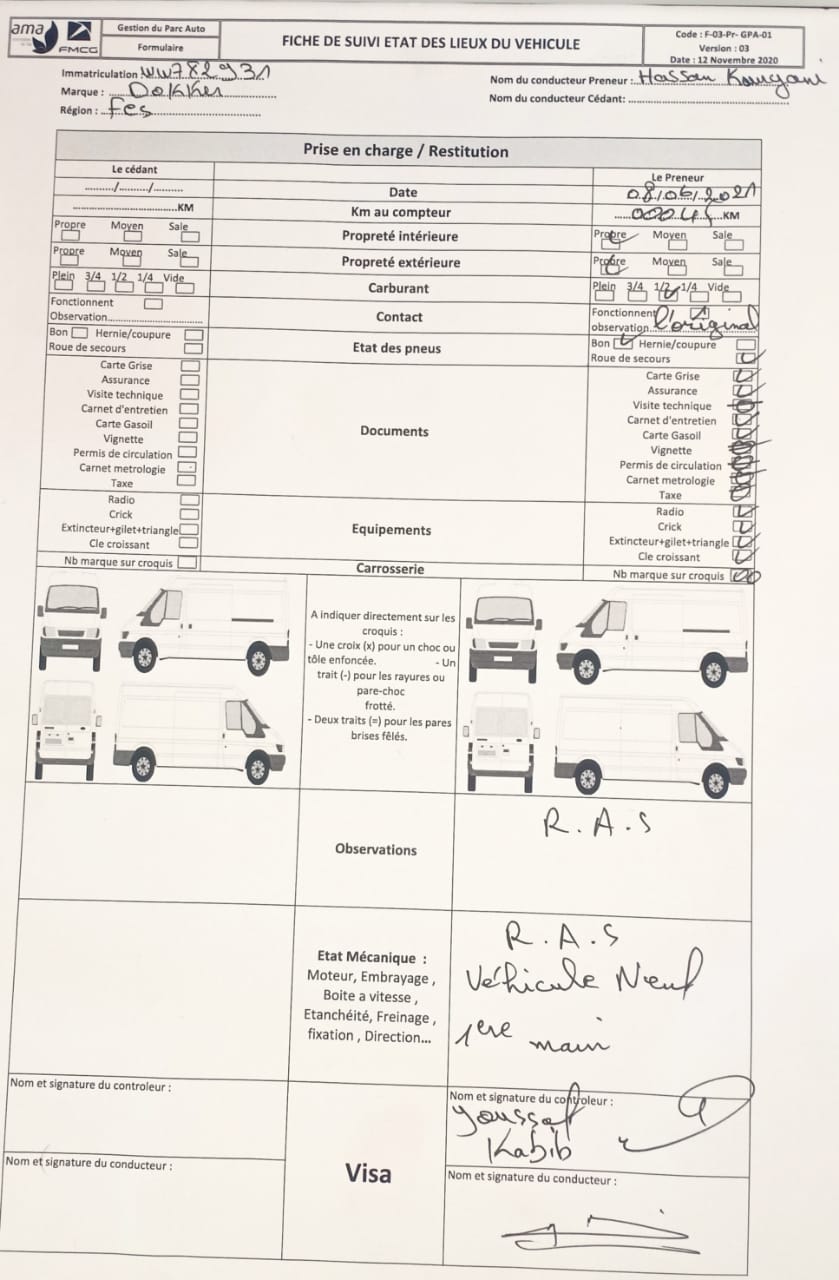 ama
FMCG
Gestion du Parc Auto
Formulaire
FICHE DE SUIVI ETAT DES LIEUX DU VEHICULE
Code : F-03-Pr- GPA-01
Version : 03
Date : 12 Novembre 2020
Immatriculation WW782931
Marque : Dokker
Région : Fes
Nom du conducteur Preneur : Hassan
Nom du conducteur Cédant:
Prise en charge / Restitution
Le cédant
Le Preneur
........./........./.........
Date
08/06/2021
KM
Km au compteur
KM
Propre Moyen Sale
Propreté intérieure
Propre Moyen Sale
Propre Moyen Sale
Propreté extérieure
Propre Moyen Sale
Plein 3/4 1/2 1/4 Vide
Carburant
Plein 3/4 1/2 1/4 Vide
Fonctionnent
Observation
Contact
Fonctionnent 1
observation l'original
Bon Hernie/coupure
Roue de secours
Etat des pneus
Bon Hernie/coupure
Roue de secours
Carte Grise
Assurance
Visite technique
Carnet d'entretien
Carte Gasoil
Vignette
Permis de circulation
Carnet metrologie
Taxe
Documents
Carte Grise
Assurance
Visite technique
Carnet d'entretien
Carte Gasoil
Vignette
Permis de circulation
Carnet metrologie
Taxe
Radio
Crick
Extincteur+gilet+triangle
Cle croissant
Equipements
Radio
Crick
Extincteur+gilet+triangle
Cle croissant
Nb marque sur croquis
Carrosserie
Nb marque sur croquis
A indiquer directement sur les
croquis :
- Une croix (x) pour un choc ou
tôle enfoncée. - Un
trait (-) pour les rayures ou
pare-choc
frotté.
- Deux traits (=) pour les pares
brises fêlés.
Observations
R.A.S
Etat Mécanique :
Moteur, Embrayage ,
Boite a vitesse ,
Etanchéité, Freinage ,
fixation , Direction...
R.A.S
Véhicule Neuf
1ere main
Nom et signature du controleur :
Nom et signature du conducteur :
Visa
Nom et signature du controleur :
Youssef
Kabib
Nom et signature du conducteur :